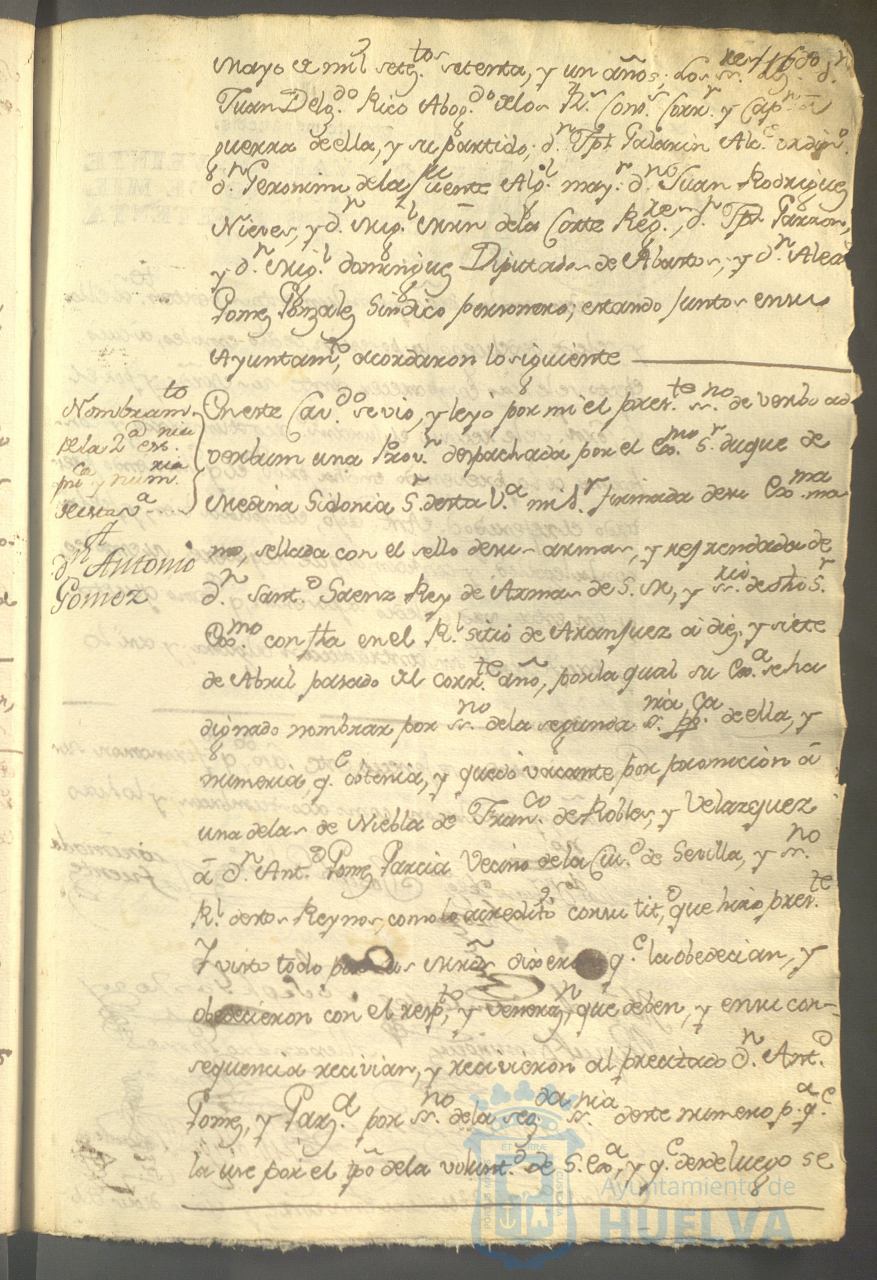 Mayo de mil setez.tos setenta, y un años. Los ss.res Lz.do d.n
Juan Delg.do Rico Abog.do de los R.s Cons.s Corr.r y Cap.n â
guerra de ella, y su partido; d.n Tph. Galarin Alc.e ordin.o
d.n Geronimo de la Fuente Alg.l may.r d.n Juan Rodriguez
Nieves, y d.n Mig.l Mrñ de la Corte Reg.res, d.n Tph. Garzon,
y d.n Mig.l dominguez Diputados de Abastos, y d.n Alexo
Gomez Gonzalez Sindico personero; estando juntos en su
Ayuntam.to, acordaron lo siguiente
Nombram.to
de la 2.da esc.nia
pu.ca y num.ria
de esta v.a
A
d.n Antonio
Gomez
En este Cav.do se vio, y leyó por mi el pres.te ss.no de verbo ad
verbum una Prov.n despachada por el Exc.mo S.r duque de
Medina Sidonia S.r desta V.a mi S.r firmada de su Exc.ma ma
no, sellada con el sello de sus armas, y refrendada de
d.n Sant.o Saenz Rey de Armas de S. M., y ss.rio de dho S.r
Exc.mo con fha en el R.l sitio de Aranjuez â diez, y siete
de Abril pasado del corr.te año, por la qual su Exc.a se ha
dignado nombrar por ss.no de la segunda ss.nia pp.ca de ella, y
numeria q.e obtenia, y quedó vacante, por promocion â
una de las de Niebla de Fran.co de Robles, y Velazquez
â d.n Ant.o Gomez Garcia Vecino de la Ciu.d de Sevilla, y ss.no
R.l de estos Reynos, como lo acreditó con su tit.o que hizo pres.te
Y visto todo por sus Mrds dixeron q.e la obedecian, y
obedecieron con el resp.to, y venera.n que deben, y en su con-
sequencia recivian, y recivieron al precitado d.n Ant.o
Gomez, y Garz.a por ss.no de la seg.da ss.nia deste numero p.a q.e
la use por el tpô de la volunt.d de S. Exc.a, y q.e desde luego se
Ayuntamiento de
HUELVA